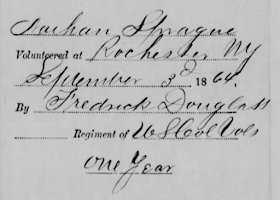 Nathan Sprague
Volunteered at Rochester NY
September 3d 1864.
By Fredrick Douglass
Regiment of U S Col Vols
One Year